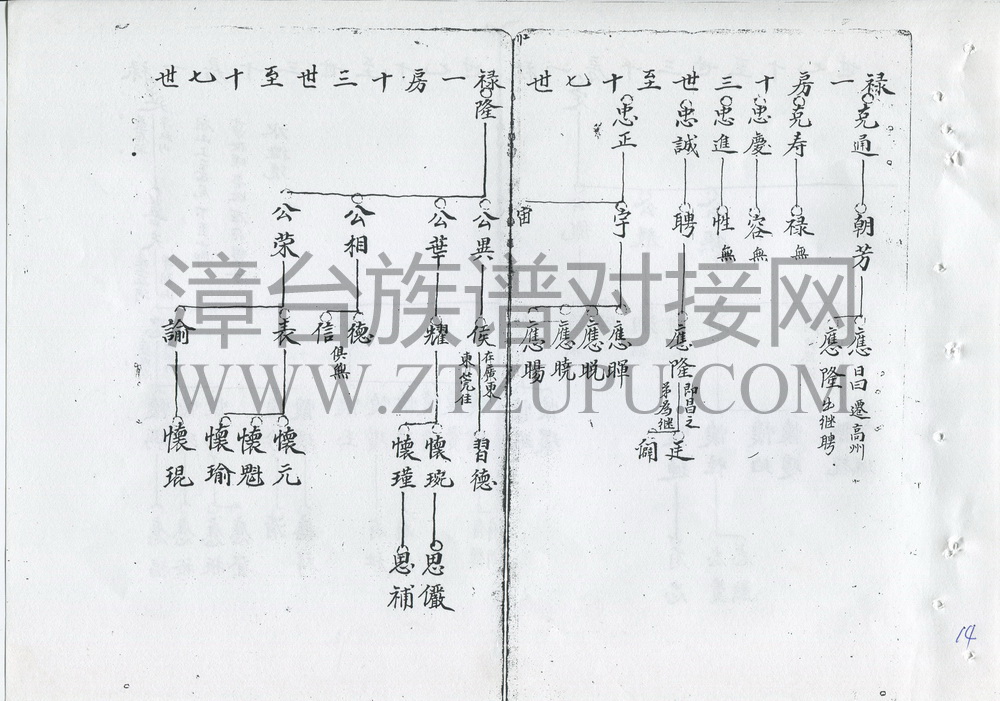 祿一房十三世至十七世
克通
克寿
忠慶
忠進
忠誠
忠正
朝芳
禄 無
容 無
性 無
聘
字
宙
應日 遷高州
應隆 出继聘
應隆 即昌之弟為继
應暉
應晩
應曉
應暘
廷
祿一房十三世至十七世
隆
公異
公葉
公相
公荣
侯 在廣東東莞住
耀
德
信
俱無
表
諭
習德
懷琬
懷瑾
懷元
懷魁
懷瑜
懷琨
思儼
思補
14
漳台族谱对接网
WWW.ZTZUPU.COM